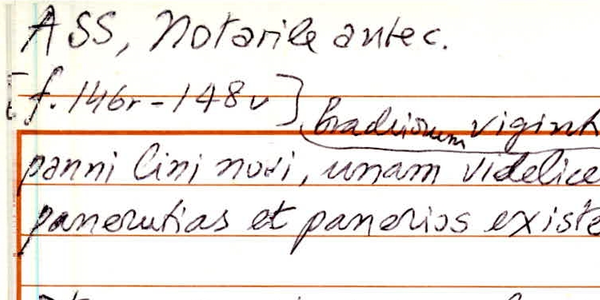 ASS, Notarile antec.
[f. 146r - 148v]
brachiorum vigint
panni lini novi, unam videlice
panerutias et panerios existe